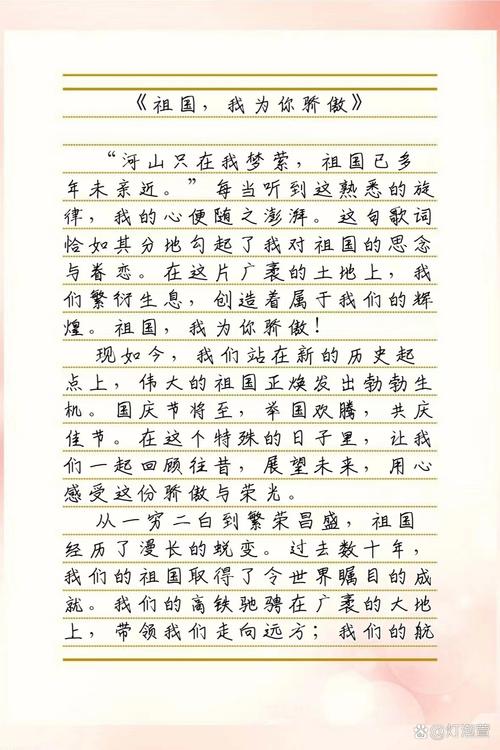 《祖国，我为你骄傲》
“河山只在我梦萦，祖国已多
年未亲近。”每当听到这熟悉的旋
律，我的心便随之澎湃。这句歌词
恰如其分地勾起了我对祖国的思念
与眷恋。在这片广袤的土地上，我
们繁衍生息，创造着属于我们的辉
煌。祖国，我为你骄傲！
现如今，我们站在新的历史起
点上，伟大的祖国正焕发出勃勃生
机。国庆节将至，举国欢腾，共庆
佳节。在这个特殊的日子里，让我
们一起回顾往昔，展望未来，用心
感受这份骄傲与荣光。
从一穷二白到繁荣昌盛，祖国
经历了漫长的蜕变。过去数十年，
我们的祖国取得了令世界瞩目的成
就。我们的高铁驰骋在广袤的大地
上，带领我们走向远方；我们的航
@灯微萱